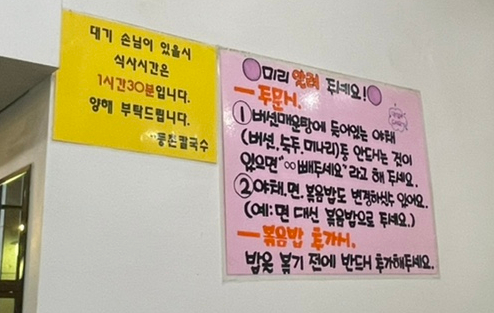 대기 손님이 있을시
식사시간은
1시간30분입니다.
양해 부탁드립니다.
등촌칼국수
미리 알려 주세요!
주문시.
① 버섯매운탕에 들어있는 야채
(버섯, 숙주, 미나리)등 안드시는 것이
있으면 "○○빼주세요" 라고 해 주세요.
② 야채. 면. 볶음밥도 변경하실수 있어요.
(예: 면 대신 볶음밥으로 주세요.)
볶음밥 추가시.
밥은 볶기 전에 반드시 추가해주세요.